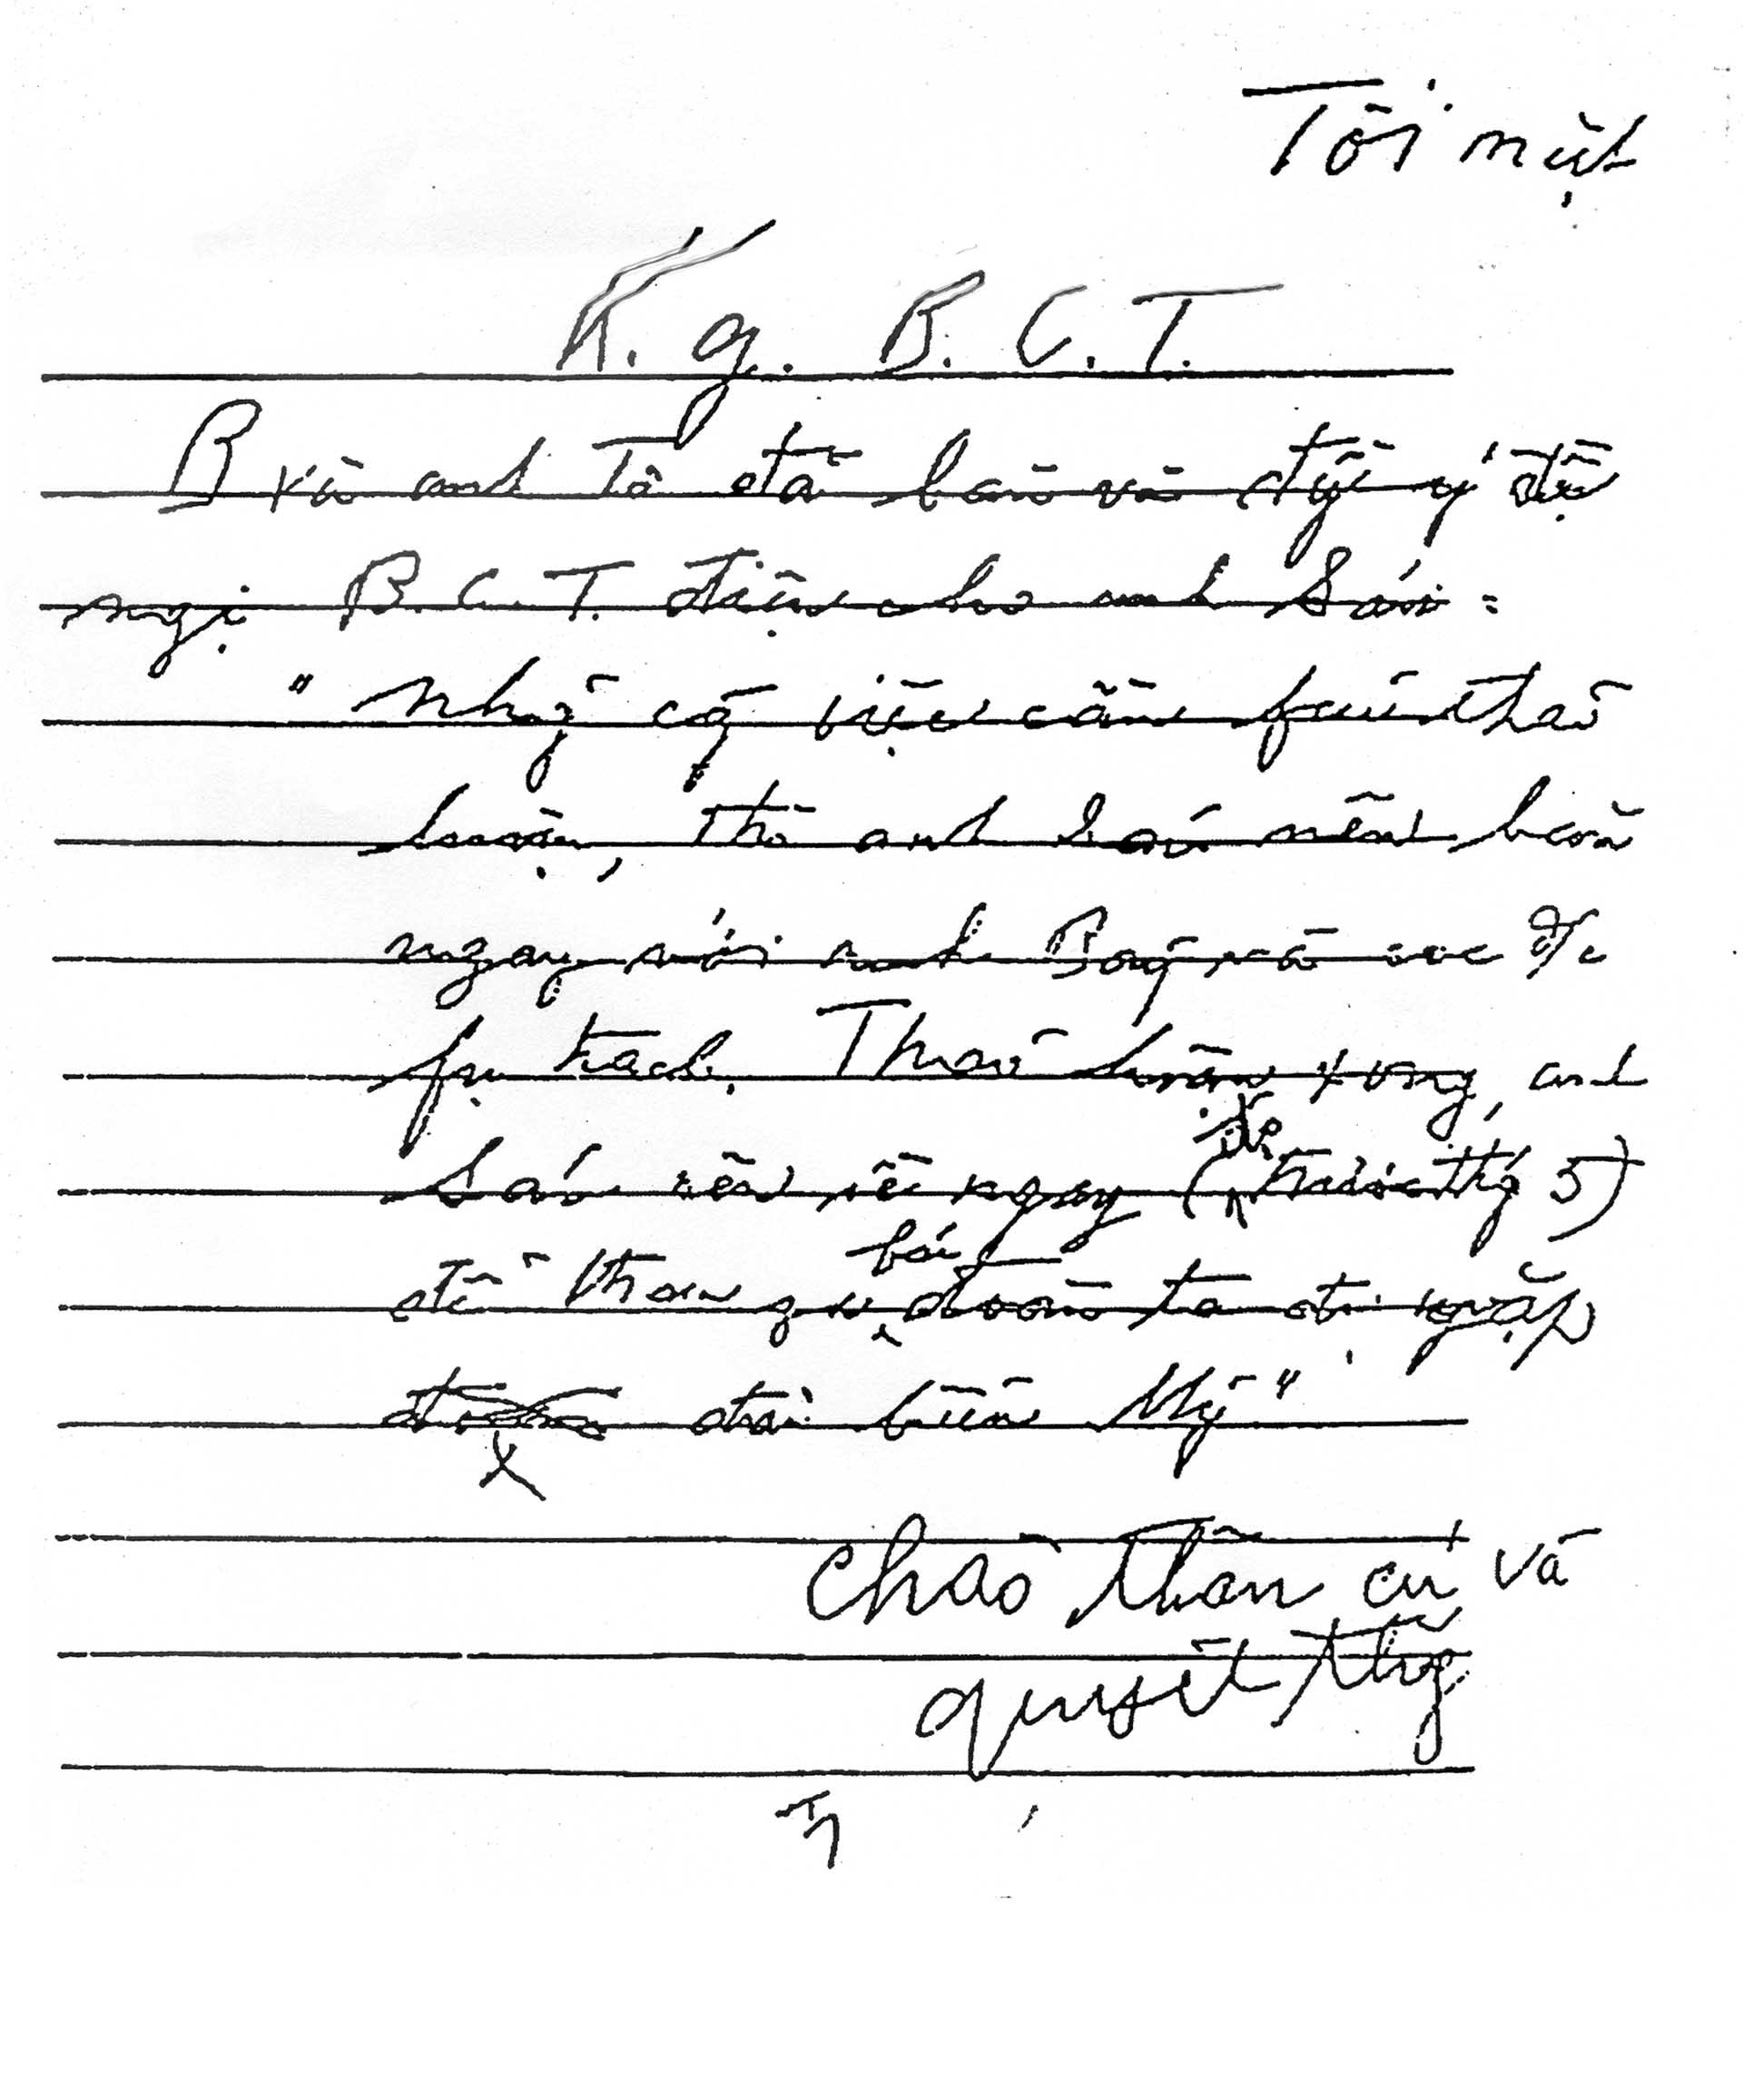 Tối mật
K. g. B. C. T.
B và anh Tô đã bàn và đồng ý đề
nghị B. C. T. điện cho anh Sáu :
" Nhg cg việc cần fải thảo
luận, thì anh Sáu nên bàn
ngay với anh Bảy và các đ/c
fụ trách. Thảo luận xong, anh
Sáu nên về ngay ( trước thg 5)
để tham gia, đoàn ta đi gặp
đại biểu Mỹ"
Chào thân ái và
quyết thắng